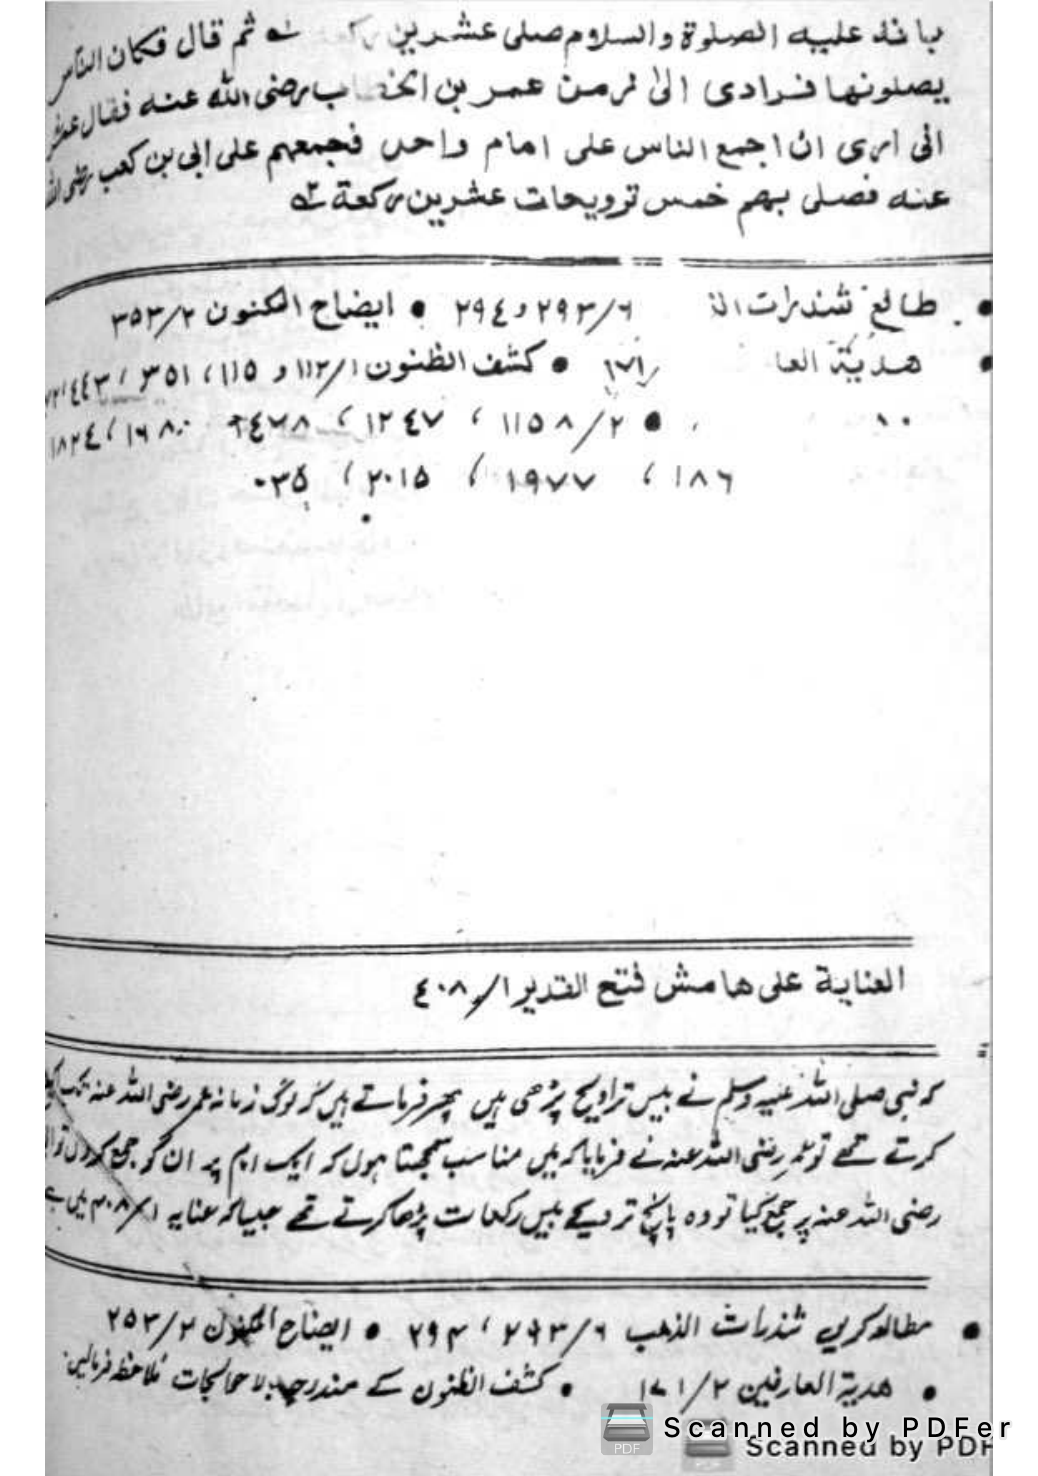 بانه عليه الصلوة والسلام صلى عشرين ثم قال فكان الناس
يصلونها فرادى الى زمن عمر بن الخطاب رضى الله عنه فقال عمر
انى ارى ان اجمع الناس على امام واحد فجمعهم على ابى بن كعب رضى الله
عنه فصلى بهم خمس ترويحات عشرين ركعة
• طالع شذرات الذ ٢٩٣/٦ و ٢٩٤ • ايضاح المكنون ٣٥٣/٢
• هدية العا ١٧١/ • كشف الظنون ١١٣/١ و ١١٥، ٣٥١، ٤٤٣
١١٥٨/٢، ١٢٤٧، ١٤٧٨، ١٦٨٠، ١٨٢٤
١٨٦، ١٩٧٧، ٢٠١٥، ٠٣٥
العناية على هامش فتح القدير ٤٠٨/١
کہ نبی صلی اللہ علیہ وسلم نے بیس تراویح پڑھی ہیں پھر فرماتے ہیں کہ لوگ زمانہ عمر رضی اللہ عنہ تک
کرتے تھے تو عمر رضی اللہ عنہ نے فرمایا کہ میں مناسب سمجھتا ہوں کہ ایک امام پر ان کو جمع کردوں تو
رضی اللہ عنہ پر جمع کیا تو وہ پانچ ترویحے بیس رکعات پڑھا کرتے تھے جیسا کہ عنایہ ۴۰۸/۱ میں ہے
• مطالعہ کریں شذرات الذهب ٢٩٣/٦، ٢٩٤ • ایضاح المکنون ٢٥٣/٢
• هدية العارفين ١٧١/٢ • کشف الظنون کے مندرجہ بالا حوالجات ملاحظہ فرمالیں
Scanned by PDFer
Scanned by PDF